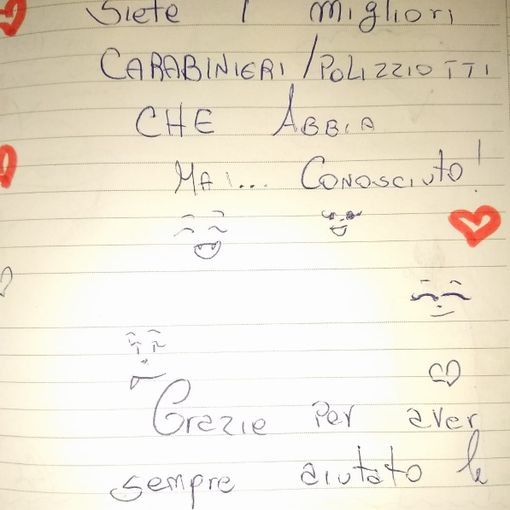 Siete I migliori
CARABINIERI/POLIZZIOTTI
CHE ABBIA
MAI... CONOSCIUTO!
Grazie per aver
sempre aiutato